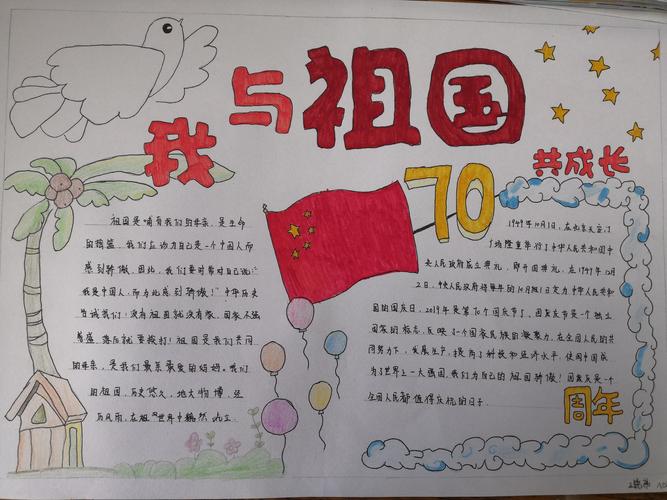 我与祖国
共成长
70
周年
祖国是哺育我们的母亲，是生命
的摇篮，我们应该为自己是一个中国人而
感到骄傲。因此，我们要时常对自己说：“
我是中国人，而为此感到骄傲！”中华历史
告诫我们：没有祖国就没有家，国家不强
落后就要挨打！祖国是我们共同
的母亲，是我们最亲最爱的妈妈。我们
的祖国，历史悠久，地大物博，
历风雨，在世界中巍然屹立。
1949年10月1日，在北京天安门
广场隆重举行了中华人民共和国中
央人民政府成立典礼，即开国典礼。在1949年12月
2日，中央人民政府将每年的10月1日定为中华人民共和
国的国庆日，2019年是第70个国庆节了。国庆反应是一个独立
国家的标志，反映了一个国家民族的凝聚力，在全国人民的共
同努力下，发展生产，提高了科技和经济水平，使中国成
为了世界上一大强国，我们为自己的祖国骄傲！国庆反是一个
全国人民都值得庆祝的日子。